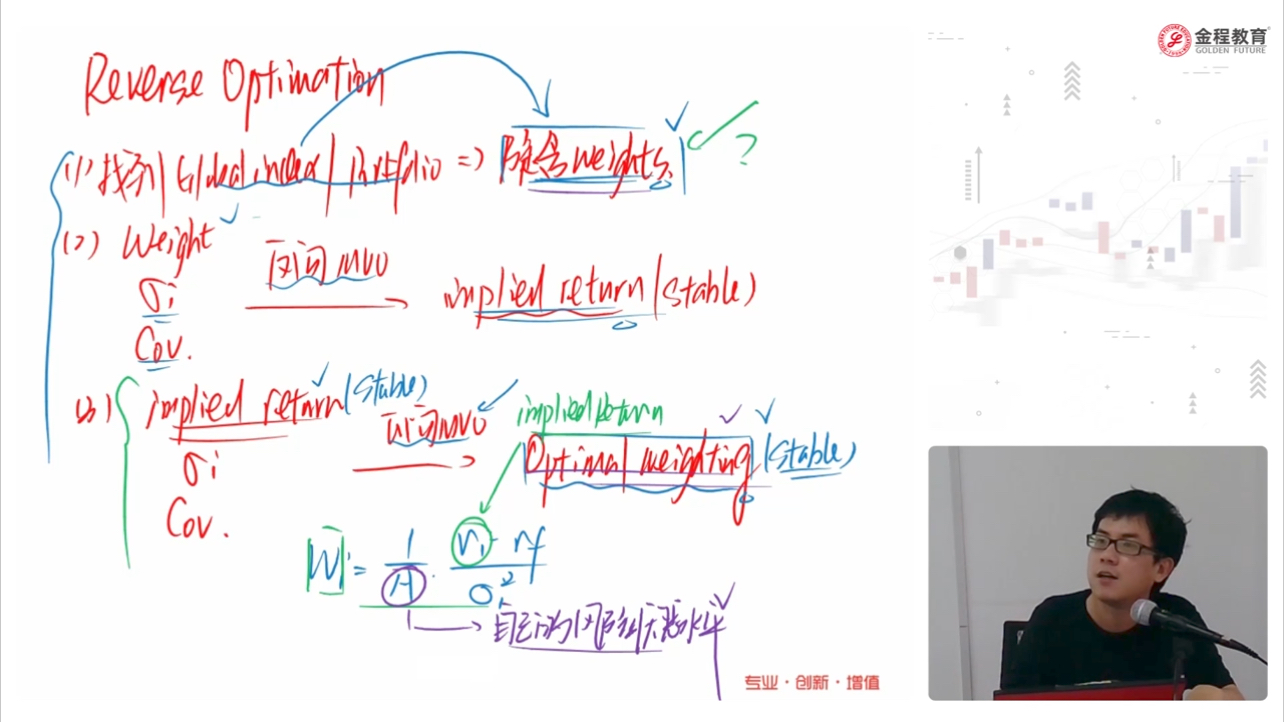 Reverse Optimation
(1) 找到 Global index / Portfolio => 隐含 weights ?
(2) Weight
σi
Cov.
反向 MVO
implied return (Stable)
(3) implied return (Stable)
σi
Cov.
正向 MVO
implied return
Optimal weighting (Stable)
Wi = 1/A · (ri - rf)/σi²
自己的风险厌恶水平
金程教育
GOLDEN FUTURE
专业・创新・增值